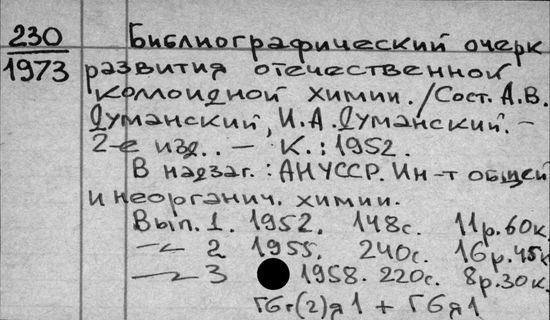 230 Библиографический очерк
1973 развития отечественной
коллоидной химии. /Сост. А.В.
Думанский, И.А. Думанский. –
2-е изд.. – К.: 1952.
В надзаг.: АН УССР. Ин-т общей
и неорганич. химии.
Вып. 1. 1952. 148с. 11р.60к.
–"– 2 1955. 240с. 16р.45к
–"– 3 1958. 220с. 8р.30к.
Г6г(2)я1 + Г6я1